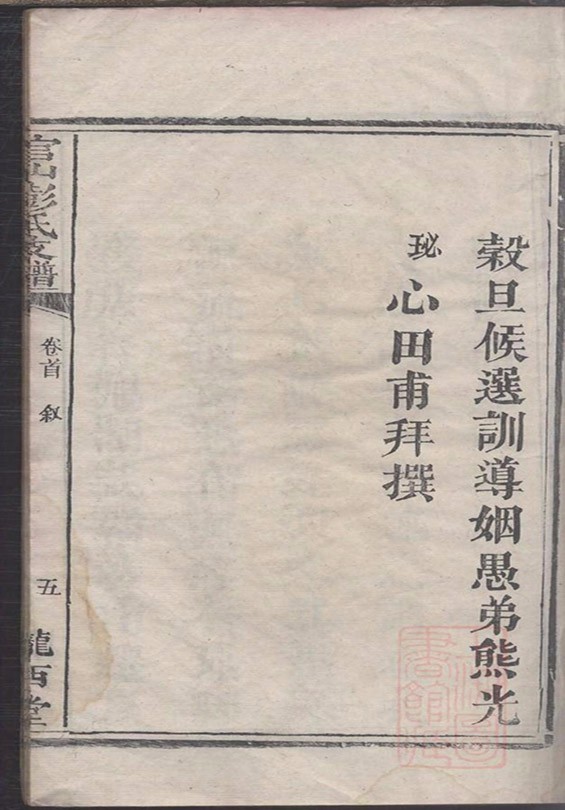 穀旦候選訓導姻愚弟熊光
珌心田甫拜撰
彭氏支譜
卷首 敘
五
隴西堂